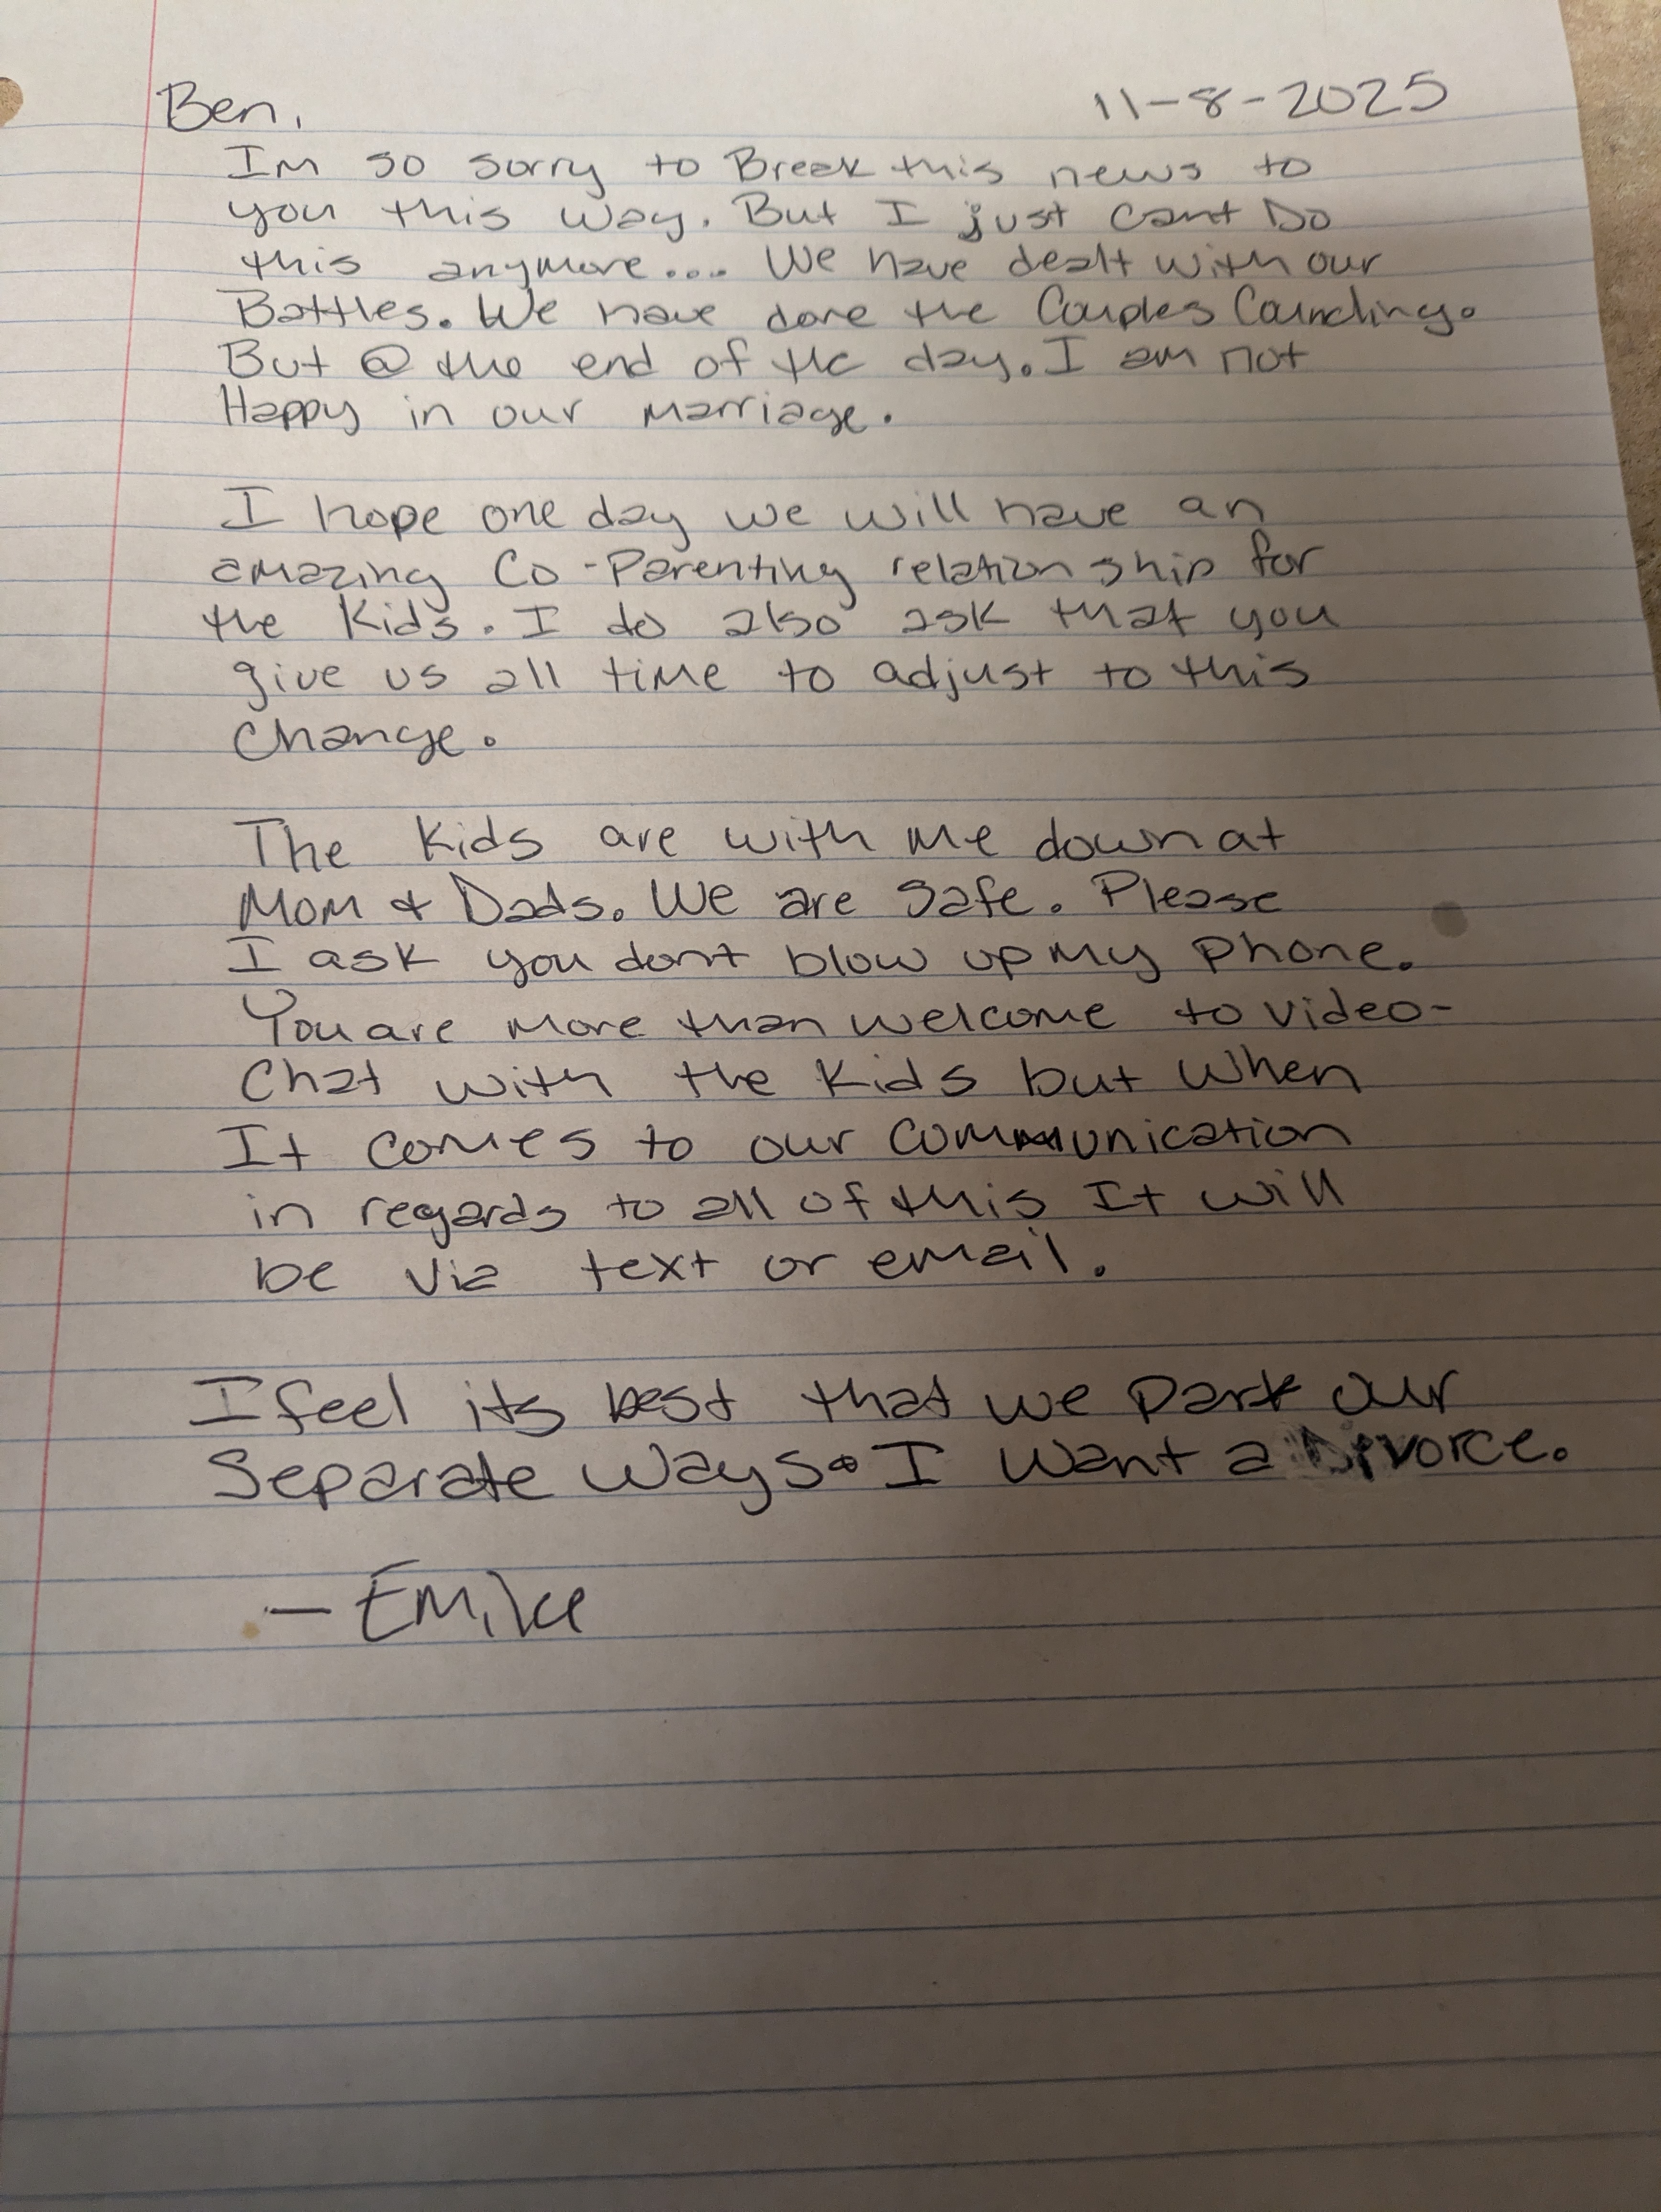 Ben, 11-8-2025
Im so sorry to Break this news to
you this way. But I just cant Do
this anymore.... We have dealt with our
Battles. We have done the Couples Counciling.
But @ the end of the day. I am not
Happy in our marriage.
I hope one day we will have an
amazing Co-Parenting relationship for
the Kids. I do also ask that you
give us all time to adjust to this
Change.
The Kids are with me down at
Mom & Dads. We are safe. Please
I ask you dont blow up my phone.
You are more than welcome to video-
Chat with the Kids but when
It comes to our communication
in regards to all of this It will
be via text or email.
I feel its best that we part our
Separate Ways. I want a Divorce.